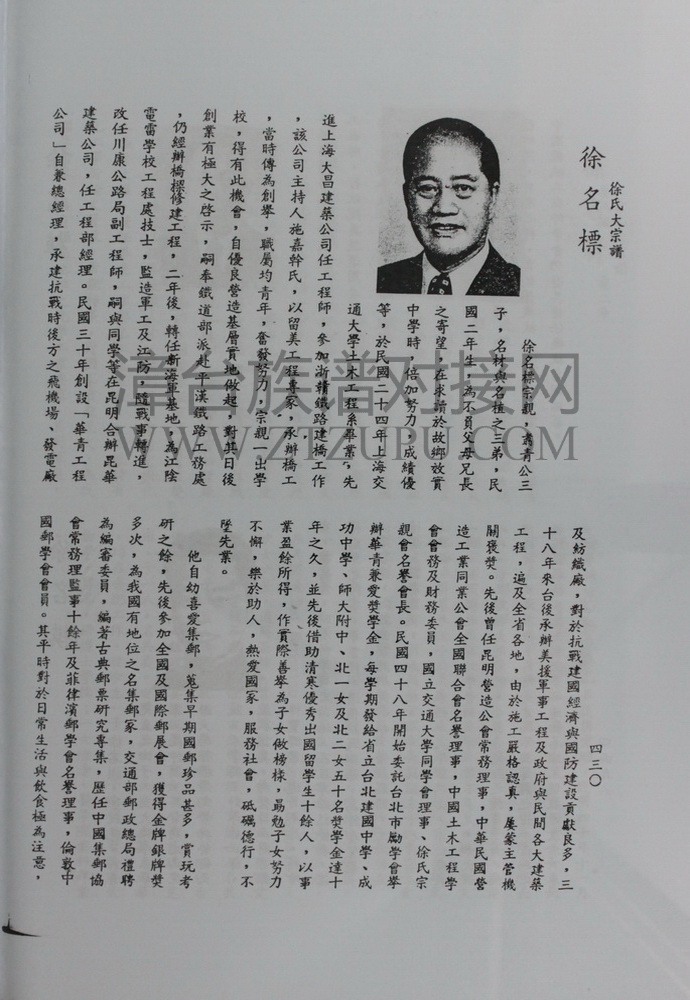 徐氏大宗譜
徐名標
徐名標宗親，肅青公三
子，名材與名植之三弟，民
國二年生，為不負父母兄長
之寄望，在求讀於故鄉效實
中學時，倍加努力，成績優
等，於民國二十四年上海交
通大學土木工程系畢業，先
進上海大昌建築公司任工程師，參加浙贛鐵路建橋工作
，該公司主持人施嘉幹氏，以留美工程專家，承辦橋工
，當時傳為創舉，職屬均青年，奮發努力，宗親一出學
校，得有此機會，自優良營造基層實地做起，對其日後
創業有極大之啓示，嗣奉鐵道部派赴平漢鐵路工務處
，仍經辦橋樑修建工程，二年後，轉任新海軍基地，為江陰
電雷學校工程處技士，監造軍工及江防，隨戰事轉進，
改任川康公路局副工程師，嗣與同學等在昆明合辦昆華
建築公司，任工程部經理。民國三十年創設「華青工程
公司」自兼總經理，承建抗戰時後方之飛機場、發電廠
四三〇
及紡織廠，對於抗戰建國經濟與國防建設貢獻良多，三
十八年來台後承辦美援軍事工程及政府與民間各大建築
工程，遍及全省各地，由於施工嚴格認真，屢蒙主管機
關褒獎。先後曾任昆明營造公會常務理事，中華民國營
造工業同業公會全國聯合會名譽理事，中國土木工程學
會會務及財務委員，國立交通大學同學會理事、徐氏宗
親會名譽會長。民國四十八年開始委託台北市勵學會舉
辦華青兼愛獎學金，每學期發給省立台北建國中學、成
功中學、師大附中、北一女及北二女五十名獎學金達十
年之久，並先後借助清寒優秀出國留學生十餘人，以事
業盈餘所得，作實際善舉為子女做榜樣，勗勉子女努力
不懈，樂於助人，熱愛國家，服務社會，砥礪德行，不
墜先業。
他自幼喜愛集郵，蒐集早期國郵珍品甚多，賞玩考
研之餘，先後參加全國及國際郵展會，獲得金牌銀牌獎
多次，為我國有地位之名集郵家，交通部郵政總局禮聘
為編審委員，編著古典郵票研究專集，歷任中國集郵協
會常務理監事十餘年及菲律濱郵學會名譽理事，倫敦中
國郵學會會員。其平時對於日常生活與飲食極為注意，
WWW.ZTZUPU.COM